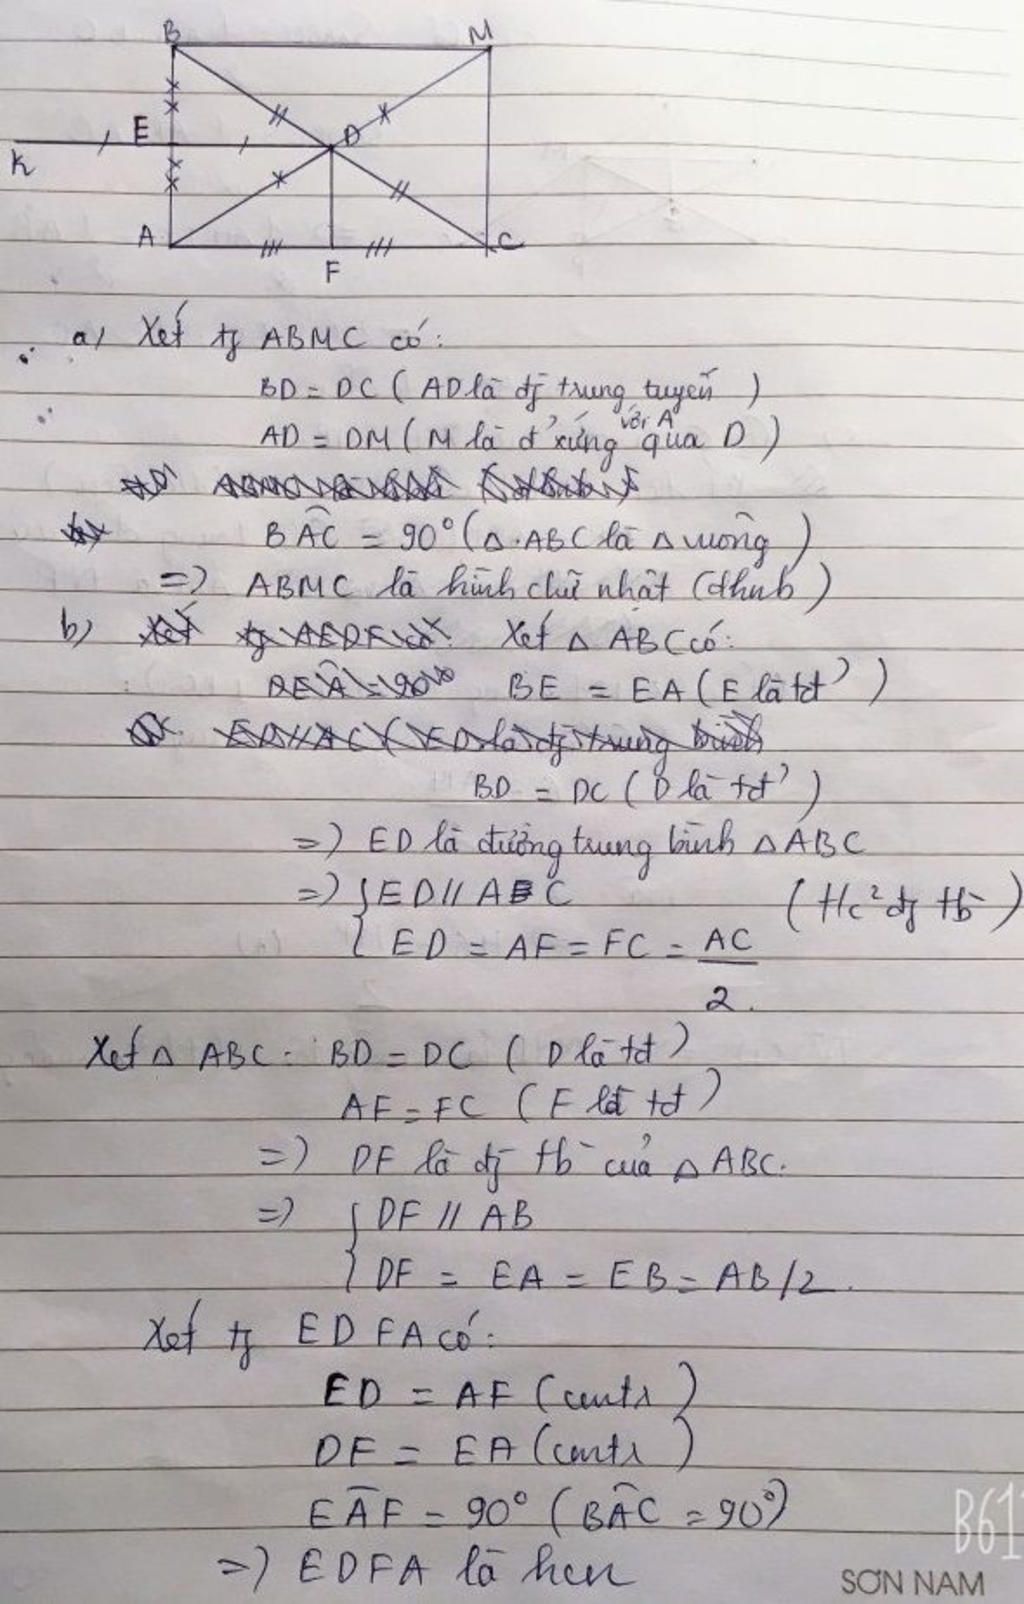 B M
E D
K
A F C
a) Xét tg ABMC có:
BD = DC ( AD là đg trung tuyến )
AD = DM ( M là đ' xứng với A qua D )
BAC = 90° ( Δ ABC là Δ vuông )
=> ABMC là hình chữ nhật (dhnb)
b) Xét tg AEDF có: Xét Δ ABC có:
BEA = 90° BE = EA ( E là tđ' )
ED // AC ( ED là đg trung bình
BD = DC ( D là tđ' )
=> ED là đường trung bình Δ ABC
=> { ED // AC ( t/c² đg tb )
ED = AF = FC = AC
2.
Xét Δ ABC : BD = DC ( D là tđ )
AF = FC ( F là tđ )
=> DF là đg tb của Δ ABC.
=> { DF // AB
DF = EA = EB = AB/2.
Xét tg EDFA có:
ED = AF (cmtr)
DF = EA (cmtr)
EAF = 90° ( BAC = 90° )
=> EDFA là hcn
B61
SƠN NAM